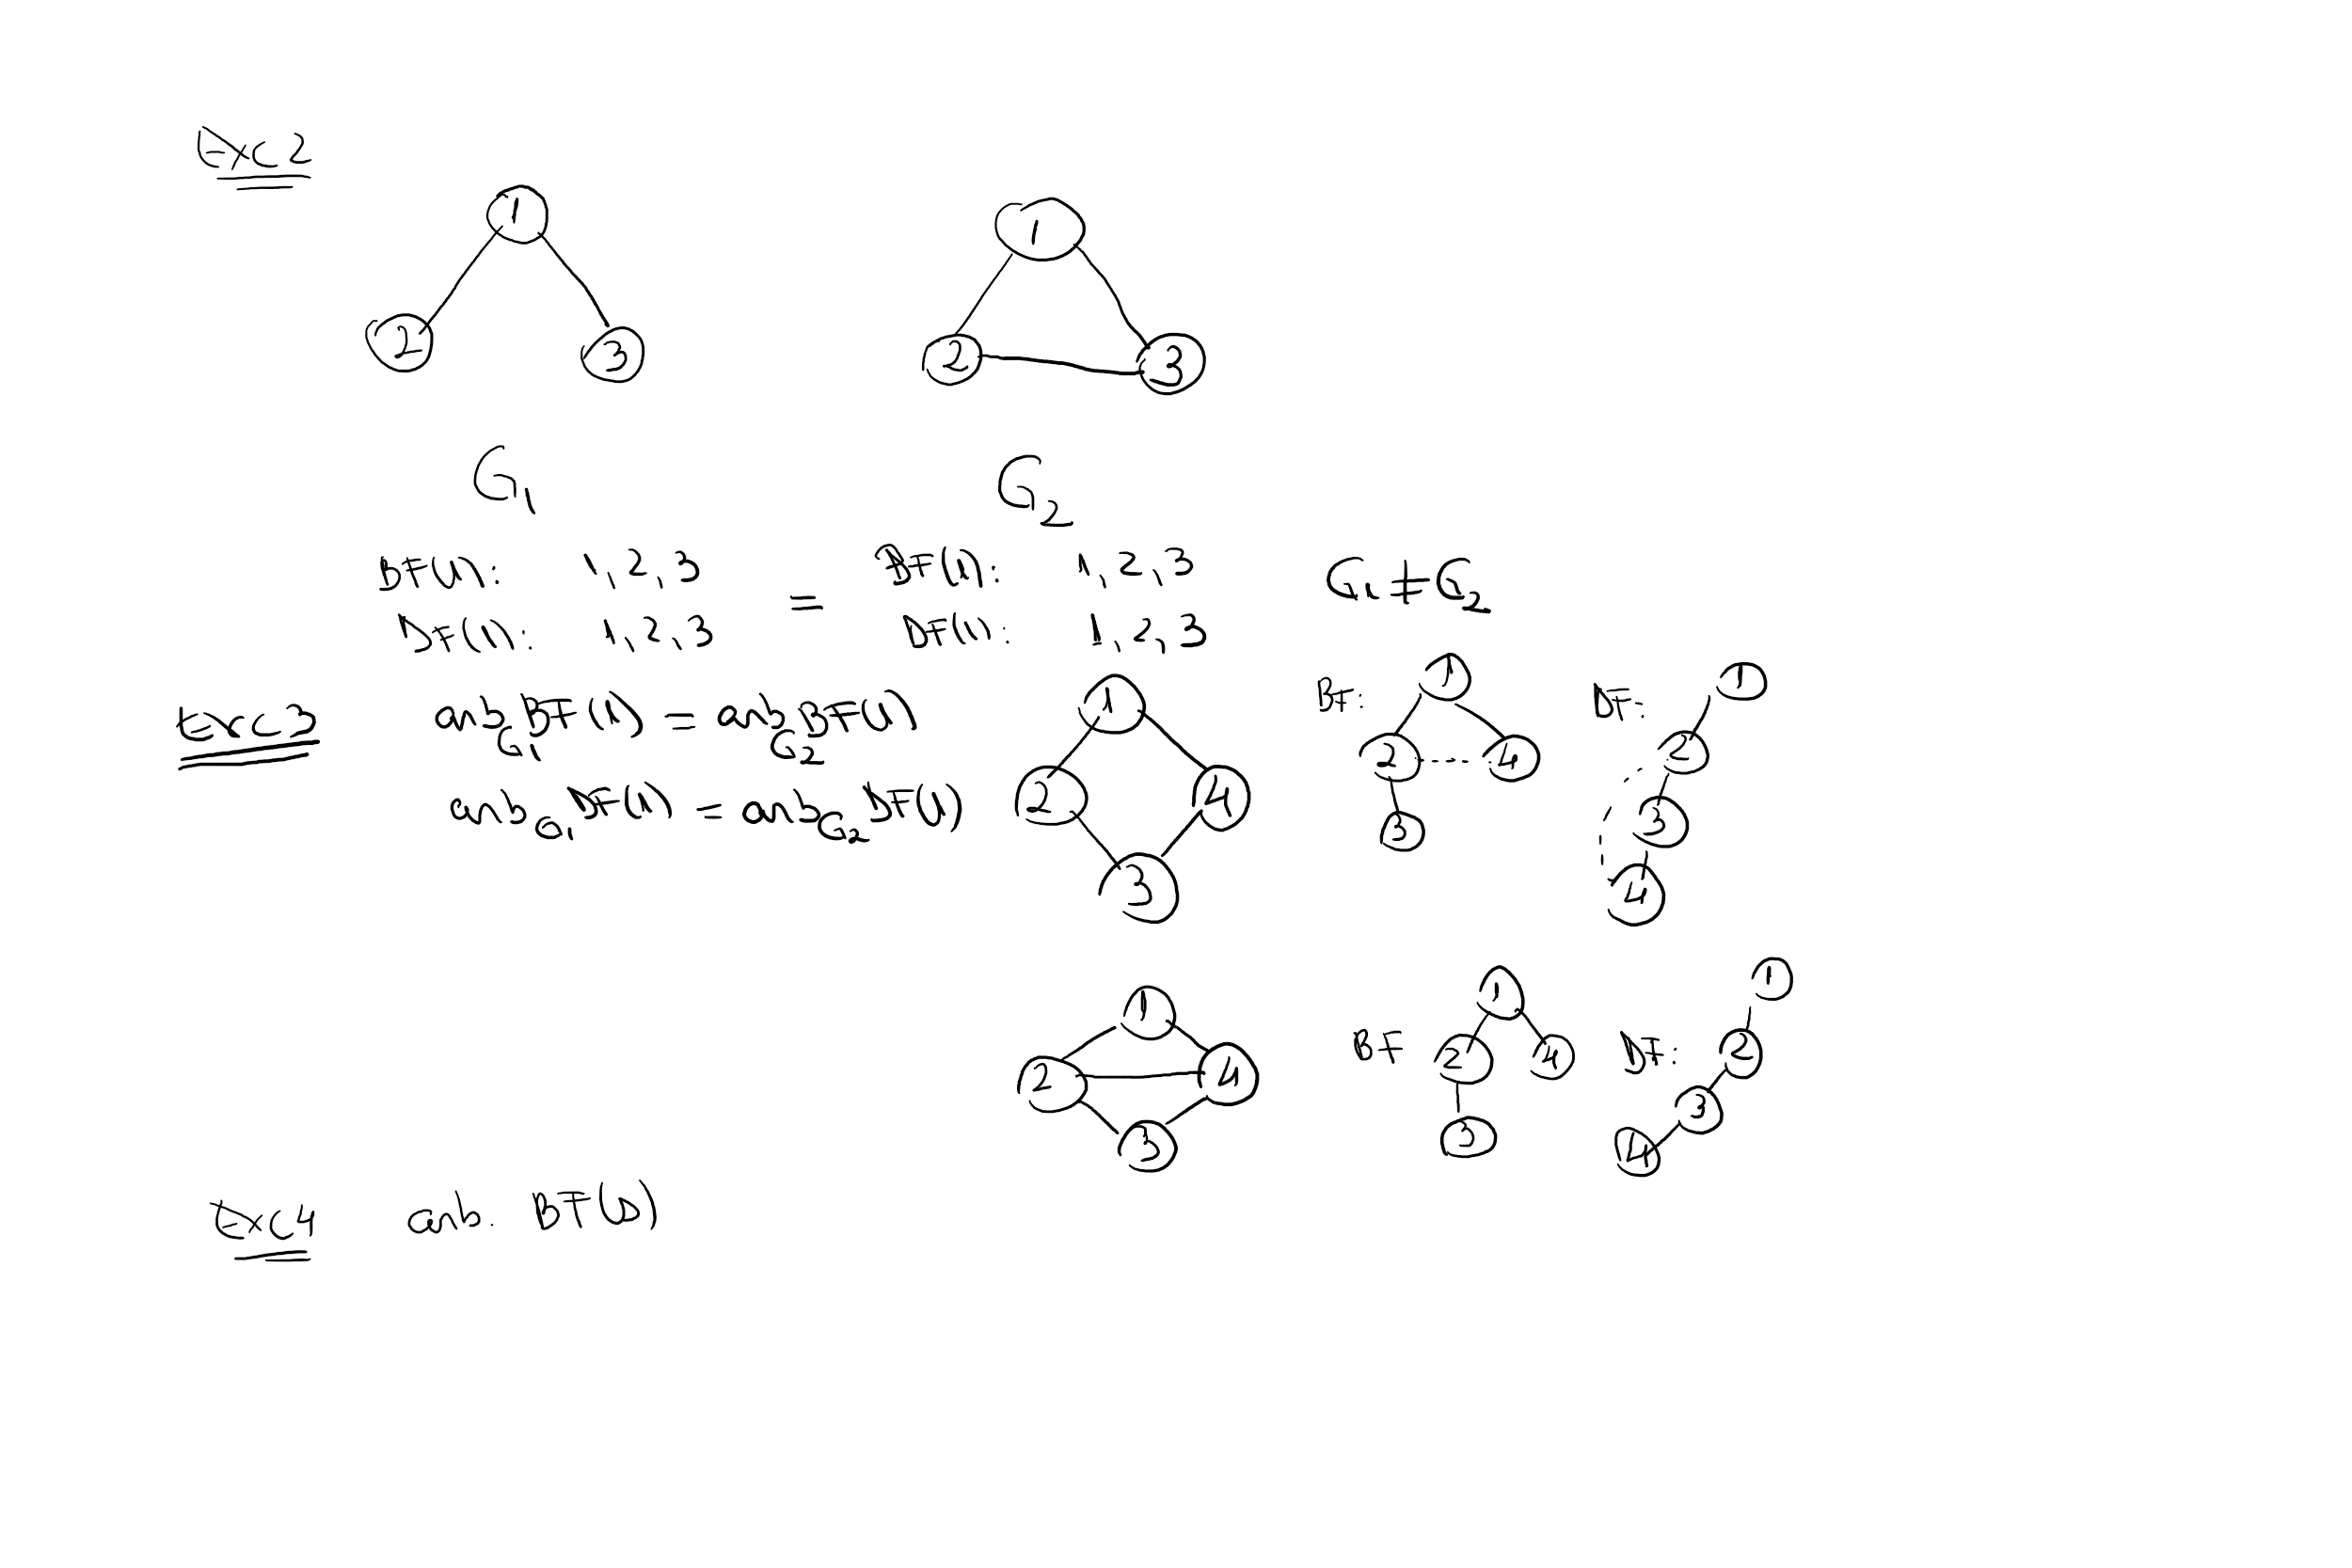 Exc 2
1
1
2
3
2
3
G1
G2
BF(1): 1, 2, 3 = BF(1): 1, 2, 3
G1 ≠ G2
DF(1): 1, 2, 3 DF(1): 1, 2, 3
Exc 3
arb G1 BF(1) = arb G2 BF(1)
arb G1 DF(1) = arb G2 DF(1)
1
2
4
3
BF:
1
2
4
3
DF:
1
2
3
4
1
2
4
3
BF
1
2
4
3
DF:
1
2
3
4
Exc 4
arb. BF(s)